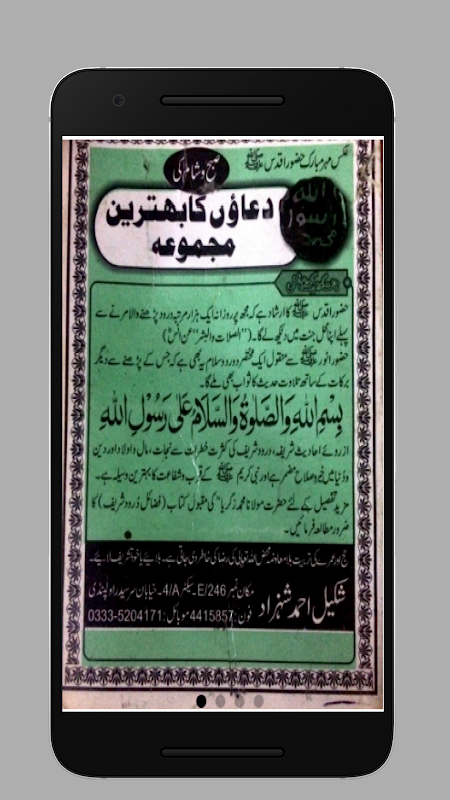 عکس مہر مبارک حضور اقدس ﷺ
صبح و شام کی
دعاؤں کا بہترین
مجموعہ
اللہ
رسول
محمد
حضور اقدس ﷺ کا ارشاد ہے کہ مجھ پر روزانہ ایک ہزار مرتبہ درود پڑھنے والا مرنے سے
پہلے اپنا محل جنت میں دیکھ لے گا۔ (''الصلات والبشر'' عن انسؓ)
حضور انور ﷺ سے منقول ایک مختصر درود سلام یہ بھی ہے کہ جس کے پڑھنے سے دیگر
برکات کے ساتھ تلاوت حدیث کا ثواب بھی ملے گا۔
بِسْمِ اللهِ وَالصَّلوٰةُ وَالسَّلَامُ عَلٰى رَسُوْلِ اللهِ
از روئے احادیث شریفہ، درود شریف کی کثرت خطرات سے نجات، مال و اولاد اور دین
و دُنیا میں خیر و صلاح مضمر ہے اور نبی کریم ﷺ کے قرب و شفاعت کا بہترین وسیلہ ہے۔
مزید تفصیل کے لئے حضرت مولانا محمد زکریاؒ کی مقبول کتاب (فضائل درود شریف) کا
ضرور مطالعہ فرمائیں۔
حج اور عمرے کی تربیت بلا معاوضہ محض اللہ تعالیٰ کی رضا کی خاطر دی جاتی ہے۔ بلائیے یا خود تشریف لائیے۔
شکیل احمد شہزاد
مکان نمبر E/246۔ سیکٹر 4/A۔ خیابان سرسید راولپنڈی
فون: 4415857 موبائل: 0333-5204171